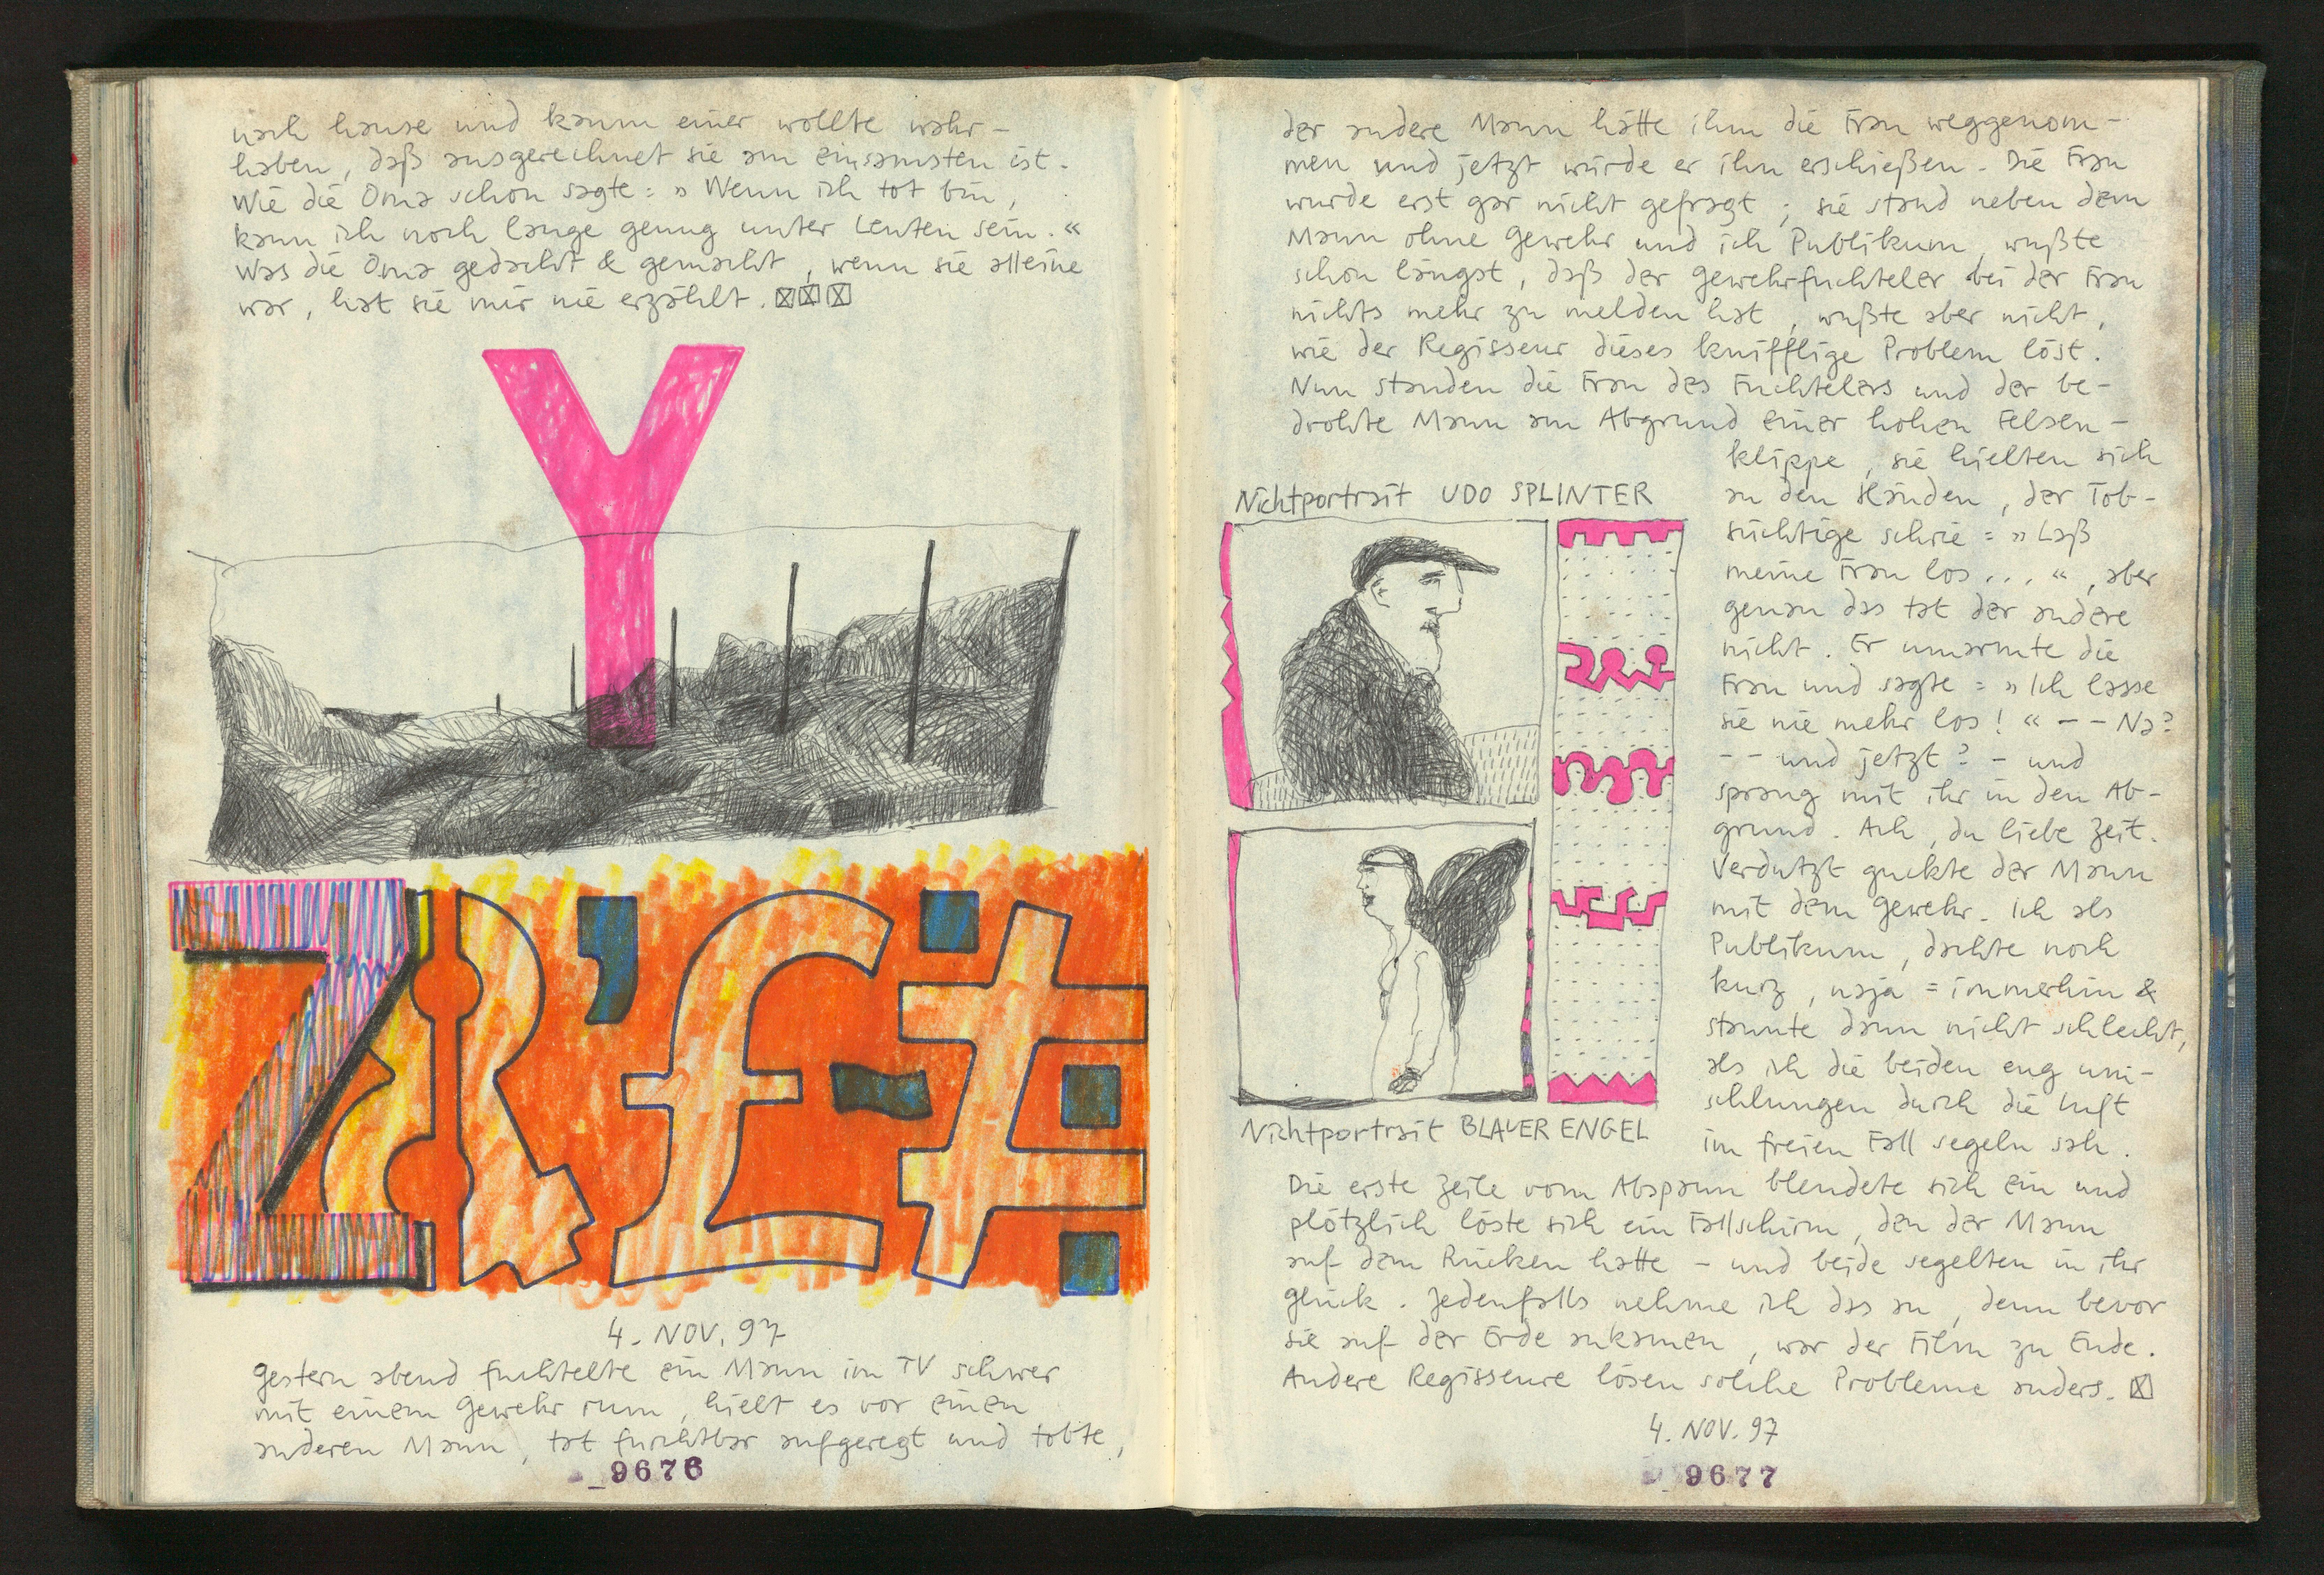 nach hause und kaum einer wollte wahr-
haben, daß ausgerechnet sie am einsamsten ist.
Wie die Oma schon sagte: »Wenn ich tot bin,
kann ich noch lange genug unter Leuten sein.«
Was die Oma gedacht & gemacht, wenn sie alleine
war, hat sie mir nie erzählt.
Y
4. NOV. 97
Gestern abend fuchtelte ein Mann im TV schwer
mit einem Gewehr rum, hielt es vor einen
anderen Mann, tat furchtbar aufgeregt und tobte,
9676
der andere Mann hätte ihm die Frau weggenom-
men und jetzt würde er ihn erschießen. Die Frau
wurde erst gar nicht gefragt; sie stand neben dem
Mann ohne Gewehr und ich Publikum, wußte
schon längst, daß der Gewehrfuchteler bei der Frau
nichts mehr zu melden hat, wußte aber nicht,
wie der Regisseur dieses knifflige Problem löst.
Nun standen die Frau des Fuchtelers und der be-
drohte Mann am Abgrund einer hohen Felsen-
klippe, sie hielten sich
an den Händen, der Tob-
süchtige schrie: »Laß
meine Frau los...«, aber
genau das tat der andere
nicht. Er umarmte die
Frau und sagte: »Ich lasse
sie nie mehr los!« -- Na?
-- und jetzt? - und
sprang mit ihr in den Ab-
grund. Ach, du liebe Zeit.
Verdutzt guckte der Mann
mit dem Gewehr. Ich als
Publikum, dachte noch
kurz, naja: immerhin &
staunte dann nicht schlecht,
als ich die beiden eng um-
schlungen durch die Luft
im freien Fall segeln sah.
Nichtportrait UDO SPLINTER
Nichtportrait BLAUER ENGEL
Die erste Zeile vom Abspann blendete sich ein und
plötzlich löste sich ein Fallschirm, den der Mann
auf dem Rücken hatte - und beide segelten in ihr
Glück. Jedenfalls nehme ich das an, denn bevor
sie auf der Erde ankamen, war der Film zu Ende.
Andere Regisseure lösen solche Probleme anders.
4. NOV. 97
9677